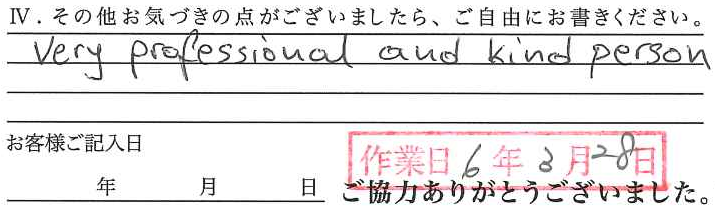 Ⅳ．その他お気づきの点がございましたら、ご自由にお書きください。
Very professional and kind person
お客様ご記入日
作業日 6年3月28日
年 月 日 ご協力ありがとうございました。